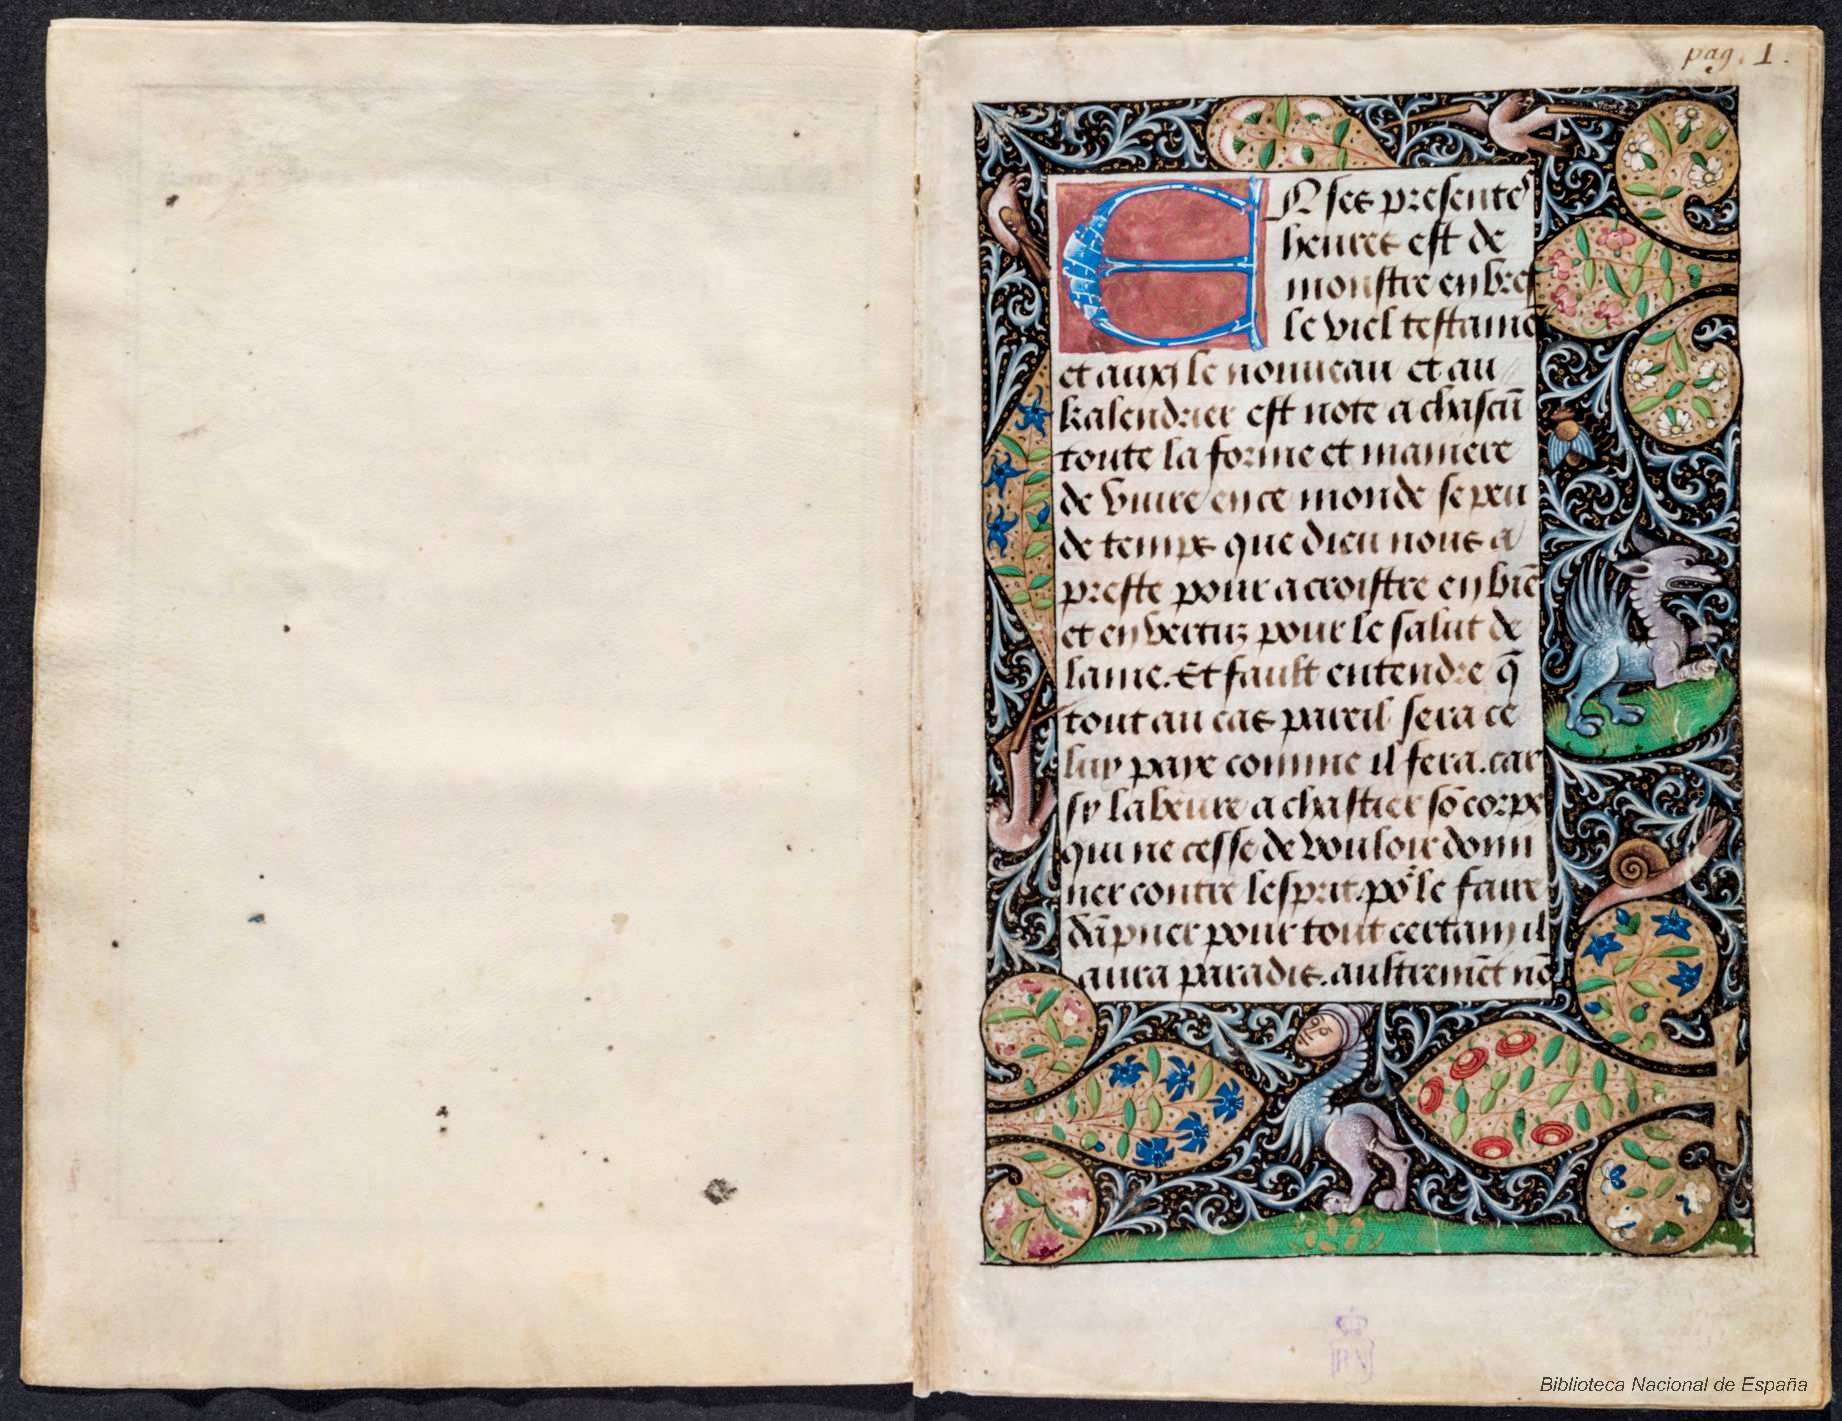 pag. 1.
EN ses presentes
heures est de
monstre en bref
le viel testamē
et auxy le nouueau et au
kalendrier est note a chascū
toute la forme et maniere
de viure en ce monde se peu
de temps que dieu nous a
preste pour acroistre en biē
et en vertuz pour le salut de
lame. Et fault entendre q̄
tout au cas pareil sera ce
luy paye comme il fera. car
sy labeure a chastier sō corps
qui ne cesse de vouloir donn
ner contre lesprit. po᷑ le faire
dāpner pour tout certain il
aura paradis. aultremēt nō
BN
Biblioteca Nacional de España